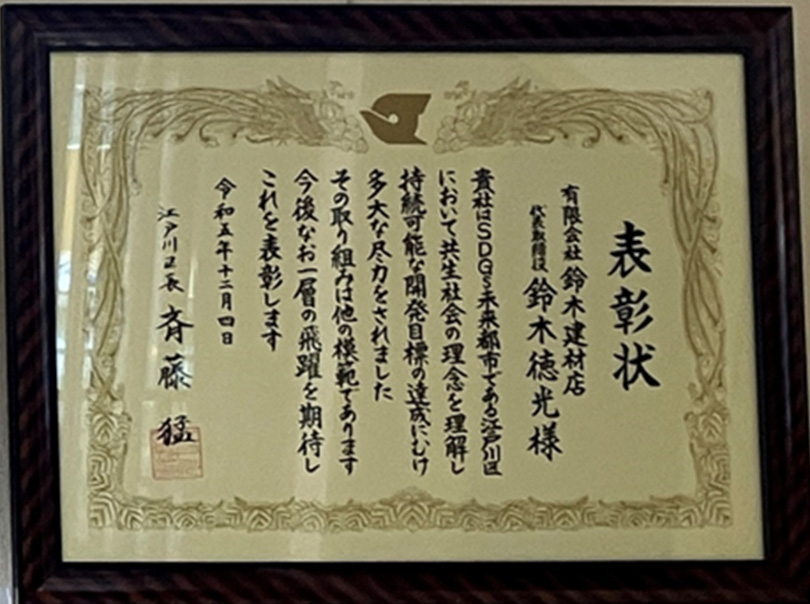 表彰状
有限会社 鈴木建材店
代表取締役 鈴木徳光様
貴社はSDGs未来都市である江戸川区
において共生社会の理念を理解し
持続可能な開発目標の達成にむけ
多大な尽力をされました
その取り組みは他の模範であります
今後なお一層の飛躍を期待し
これを表彰します
令和五年十二月四日
江戸川区長 斉藤 猛